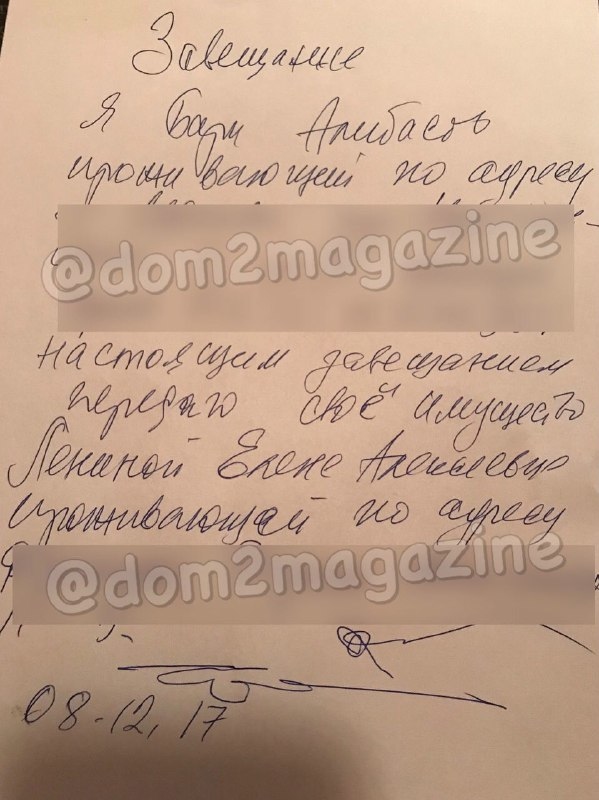 Завещание
Я Бари Алибасов
проживающий по адресу
@dom2magazine
настоящим завещанием
передаю своё имущество
Лениной Елене Алексеевне
проживающей по адресу
@dom2magazine
08.12.17